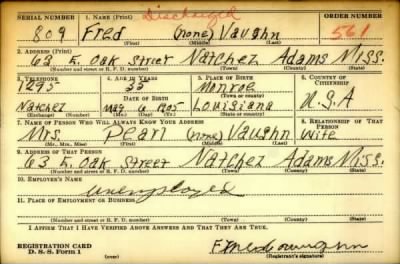 Discharged
SERIAL NUMBER 1. NAME (Print) ORDER NUMBER
809 Fred (none) Vaughn 561
(First) (Middle) (Last)
2. ADDRESS (Print)
63 E. Oak Street Natchez Adams Miss.
(Number and street or R. F. D. number) (Town) (County) (State)
3. TELEPHONE 4. AGE IN YEARS 5. PLACE OF BIRTH 6. COUNTRY OF CITIZENSHIP
1295 35 Monroe
DATE OF BIRTH (Town or county)
Natchez May 6 1905 Louisiana U.S.A
(Exchange) (Number) (Mo.) (Day) (Yr.) (State or country)
7. NAME OF PERSON WHO WILL ALWAYS KNOW YOUR ADDRESS 8. RELATIONSHIP OF THAT PERSON
Mrs. Pearl (none) Vaughn Wife
(Mr., Mrs., Miss) (First) (Middle) (Last)
9. ADDRESS OF THAT PERSON
63 E. Oak Street Natchez Adams Miss.
(Number and street or R. F. D. number) (Town) (County) (State)
10. EMPLOYER'S NAME
Unemployed
11. PLACE OF EMPLOYMENT OR BUSINESS
(Number and street or R. F. D. number) (Town) (County) (State)
I AFFIRM THAT I HAVE VERIFIED ABOVE ANSWERS AND THAT THEY ARE TRUE.
REGISTRATION CARD
D. S. S. Form 1
(Registrant's signature)